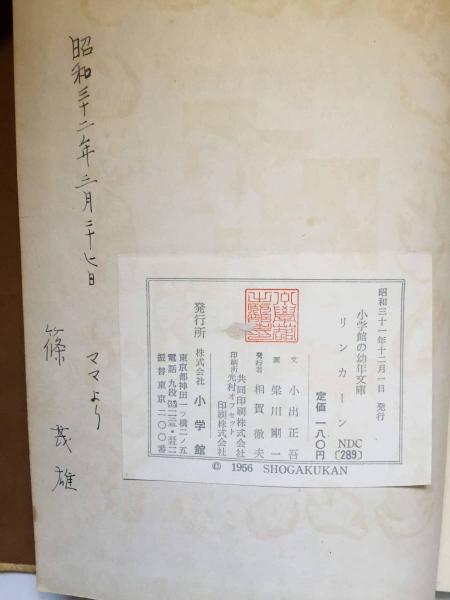 昭和三十一年十二月一日 発行
小学館の幼年文庫
リンカーン
NDC
〔289〕
定価 一八〇円
文 小出正吾
画 梁川剛一
発行者 相賀徹夫
印刷所
共同印刷株式会社
光村オフセット
印刷株式会社
発行所 株式会社 小学館
東京都神田一ツ橋二ノ五
振替東京二〇〇番
© 1956 SHOGAKUKAN
昭和三十二年三月二十七日
ママより
篠 茂雄